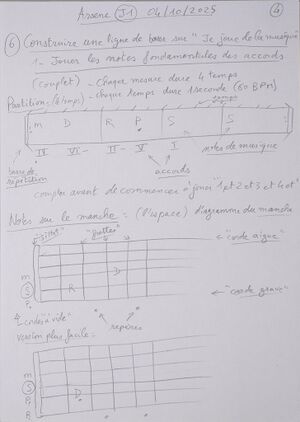 Arsene (J1) 04/10/2025 (4)
(6) Construire une ligne de basse sur "Je joue de la musique"
1- Jouer les notes fondamentales des accords
(couplet) - Chaque mesure dure 4 temps
Partition: (4 temps) - Chaque temps dure 1 seconde (60 BPM)
m D R P S S
III VI- II- V I notes de musique
barre de répétition accords
compter avant de commencer 1 et 2 et 3 et 4 et"
Notes sur le manche = (l'espace) diagramme du manche
"frettes"
"corde aigue"
m
(S) D
P R
"corde grave"
4 cordes "à vide" repères
version plus facile:
m
(S)
P D
R